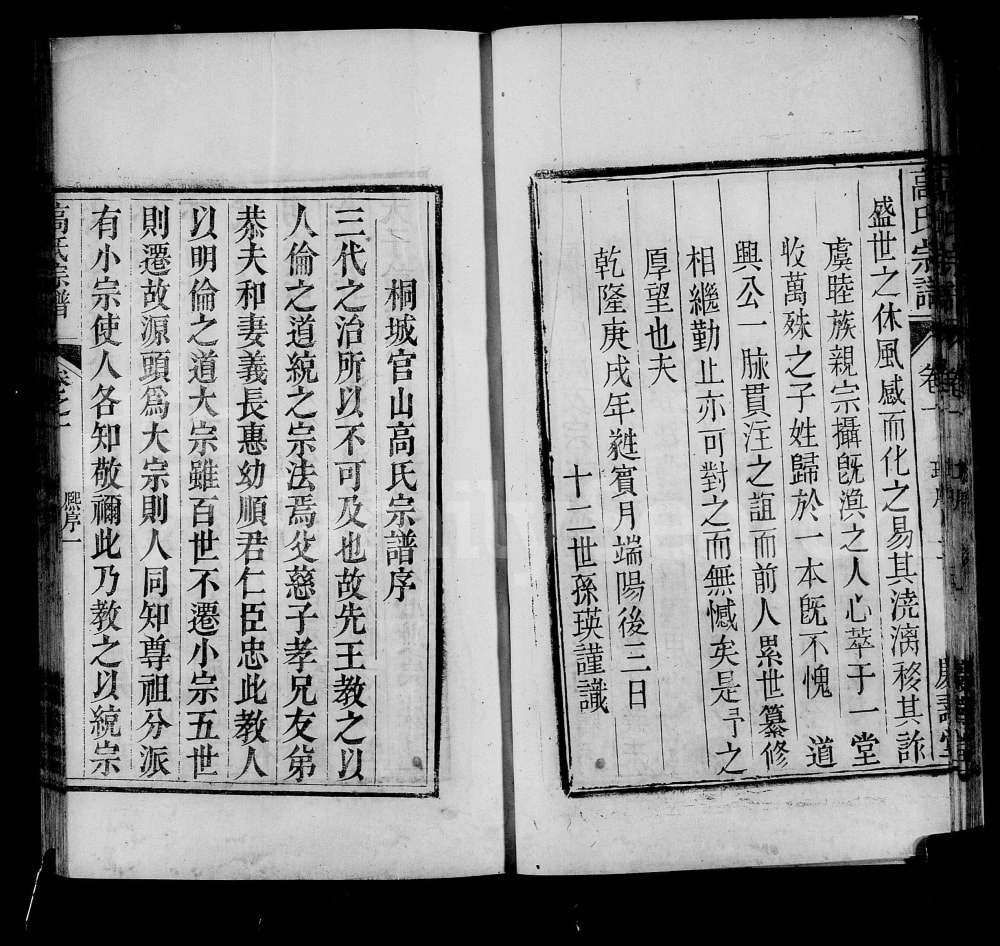 高氏宗譜
卷一
盛世之休風感而化之易其澆漓移其詐
虞睦族親宗攝旣渙之人心萃于一堂
收萬殊之子姓歸於一本旣不愧 道
興公一脉貫注之誼而前人累世纂修
相繼勤止亦可對之而無憾矣是予之
厚望也夫
乾隆庚戌年蕤賓月端陽後三日
十二世孫瑛謹識
桐城官山高氏宗譜序
三代之治所以不可及也故先王教之以
人倫之道統之宗法焉父慈子孝兄友弟
恭夫和妻義長惠幼順君仁臣忠此教人
以明倫之道大宗雖百世不遷小宗五世
則遷故源頭爲大宗則人同知尊祖分派
有小宗使人各知敬禰此乃教之以統宗
高氏宗譜
卷之一
熙序一